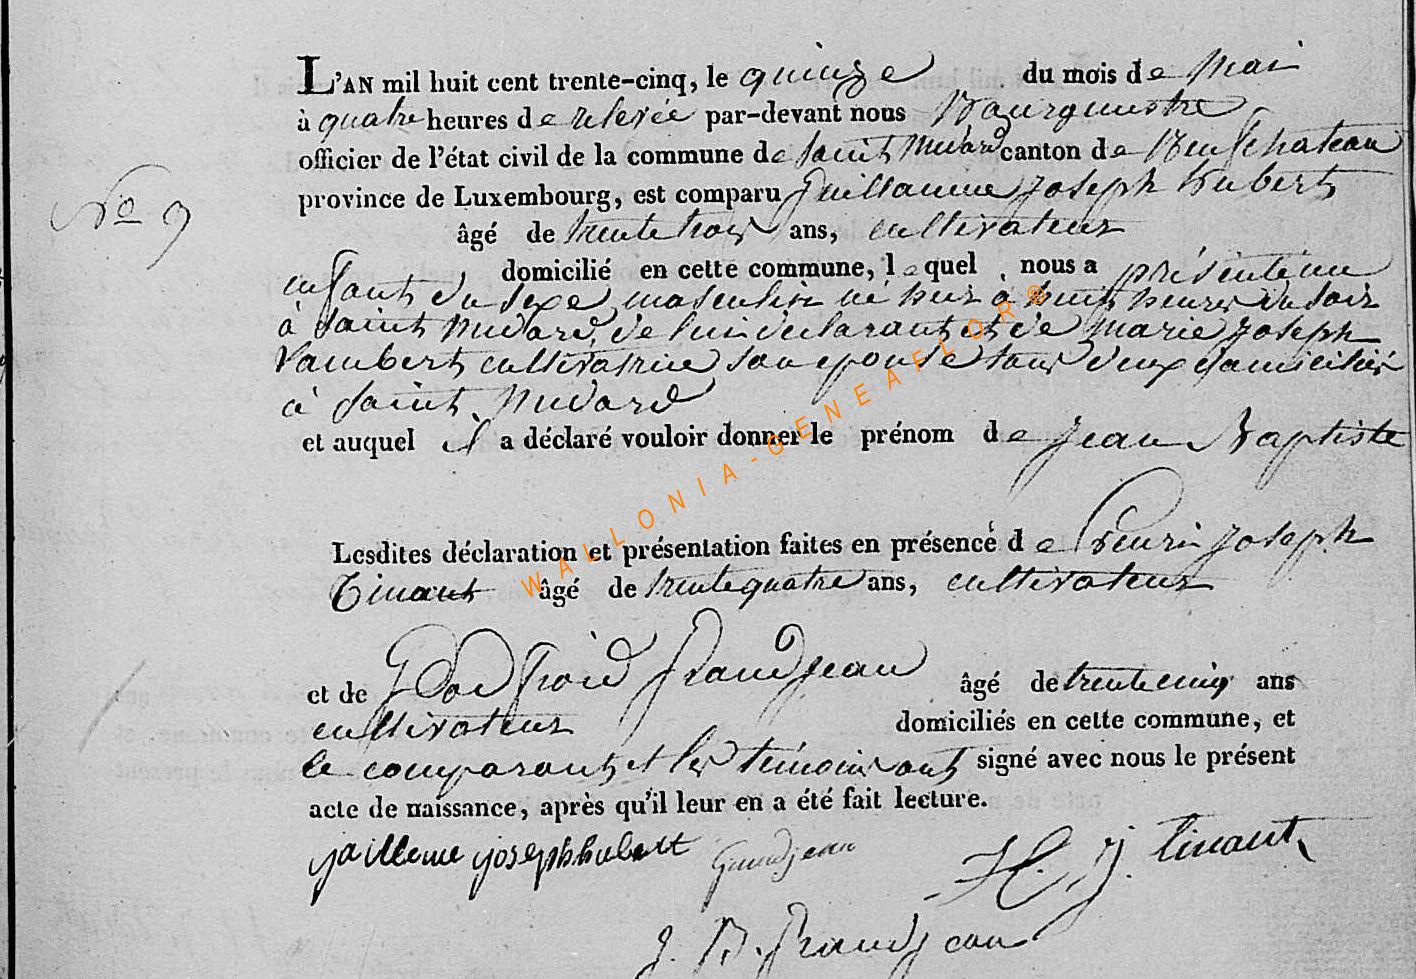 L'AN mil huit cent trente-cinq, le quinze du mois de mai
à quatre heures de relevée par-devant nous Bourgmestre
officier de l'état civil de la commune de Saint Médard canton de Neufchateau
province de Luxembourg, est comparu Guillaume Joseph hubert
N° 9
âgé de trente trois ans, cultivateur
domicilié en cette commune, lequel nous a présenté un
enfant du sexe masculin né hier à huit heures du soir
à Saint Médard, de lui déclarant et de marie Joseph
Lambert cultivatrice son epouse tous deux domiciliés
à Saint Médard
et auquel il a déclaré vouloir donner le prénom de Jean Baptiste
Lesdites déclaration et présentation faites en présence de henri Joseph
Tinant âgé de trente quatre ans, cultivateur
et de Godfroid Grandjean âgé de trente cinq ans
cultivateur domiciliés en cette commune, et
le comparant et les témoins ont signé avec nous le présent
acte de naissance, après qu'il leur en a été fait lecture.
gailleme joseph hubert Grandjean H. J. tinant
J. B. Grandjean
WALLONIA-GENEAFLOR®